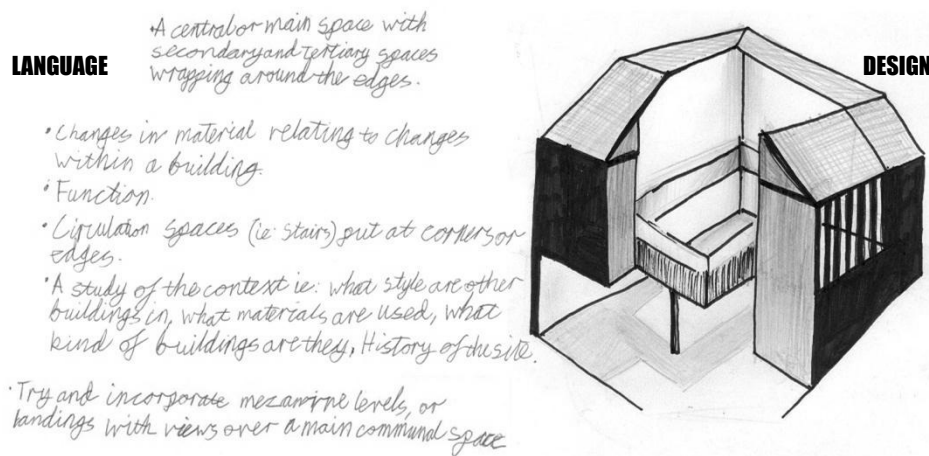 LANGUAGE
DESIGN
•A central or main space with
secondary and Tertiary spaces
wrapping around the edges.
•Changes in material relating to changes
within a building.
•Function.
•Circulation spaces (ie: stairs) put at corners or
edges.
•A study of the context ie: what style are other
buildings in, what materials are used, what
kind of buildings are they, History of the site.
•Try and incorporate mezanirne levels, or
landings with views over a main communal space